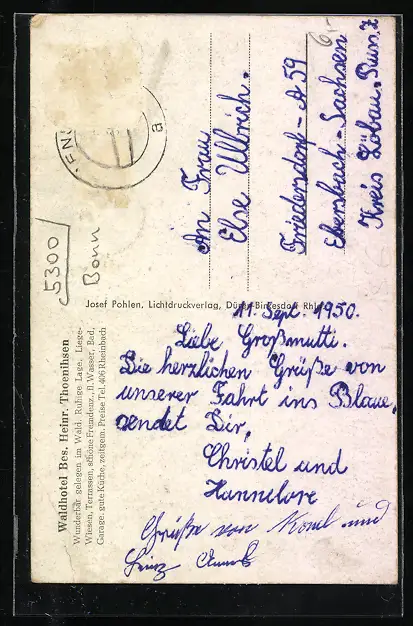 11. Sept. 1950.
Liebe Großmutti.
Die herzlichen Grüße von
unserer Fahrt ins Blaue,
sendet Dir,
Christel und
Hannelore
Grüße von und
Heinz
An Frau
Else Ullrich.
Friedersdorf - A 59
Ebersbach-Sachsen
Kreis Löbau. Russ. Z
6,-
a
5300
Bonn
Josef Pohlen, Lichtdruckverlag, Düren-Birkesdorf Rhld.
Waldhotel Bes. Heinr. Thoenihsen
Wunderbar gelegen im Wald. Ruhige Lage, Liege-
Wiesen, Terrassen, schöne Fremdenz., fl. Wasser, Bad,
Garage, gute Küche, zeitgem. Preise Tel. 406 Rheinbach